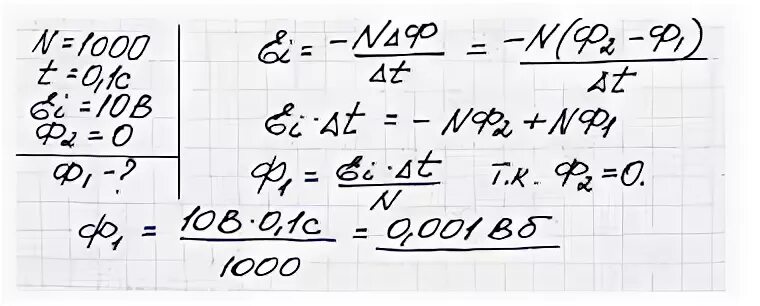 N = 1000
t = 0,1с
Ɛi = 10В
Ф₂ = 0
Ф₁ - ?
Ɛi = -NΔФ/Δt = -N(Ф₂ - Ф₁)/Δt
Ɛi · Δt = - NФ₂ + NФ₁
Ф₁ = Ɛi · Δt/N т.к. Ф₂ = 0.
Ф₁ = 10В · 0,1с/1000 = 0,001 Вб